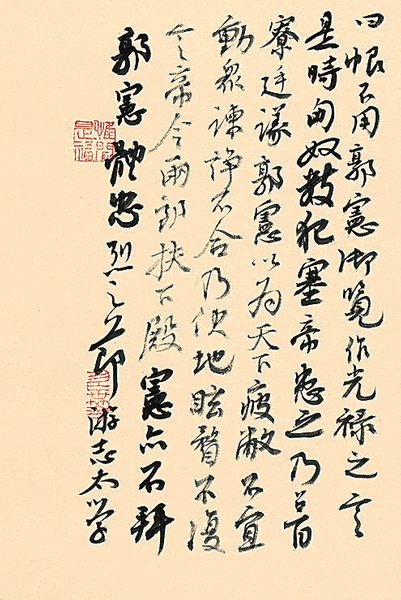 曰恨不用郭憲御覽作光禄之言
是時匈奴數犯塞帝患之乃召百
寮廷議郭憲以为天下疲敝不宜
動眾諫諍不合乃伏地眩瞀不復
言帝令兩郎扶下殿憲亦不拜
郭憲體忠烈之立節游志太学